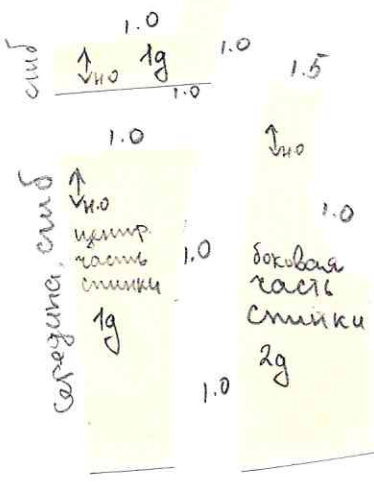 1.0
сгиб
↕но 1д
1.0
1.0
1.5
1.0
↕но
Середина, сгиб
↕но
центр.
часть
спинки
1д
1.0
1.0
1.0
боковая
часть
спинки
2д